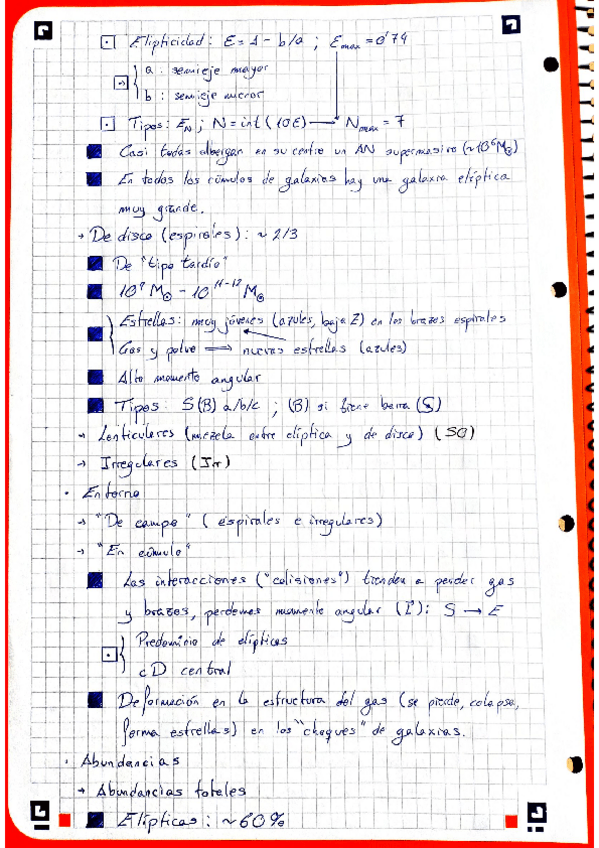 Elipticidad: E = 1 - b/a ; Emax = 0'74
a : semieje mayor
b : semieje menor
Tipos: EN ; N = int (10E) → Nmax = 7
Casi todas albergan en su centro un AN supermasivo (~10⁶M☉)
En todos los cúmulos de galaxias hay una galaxia elíptica
muy grande.
→ De disco (espirales): ~ 2/3
De "tipo tardío"
10⁹ M☉ - 10¹¹⁻¹² M☉
Estrellas: muy jóvenes (azules, baja Z) en los brazos espirales
Gas y polvo ⇒ nuevas estrellas (azules)
Alto momento angular
Tipos: S(B) a/b/c ; (B) si tiene barra (S)
→ Lenticulares (mezcla entre elíptica y de disco) (S0)
→ Irregulares (Irr)
· Entorno
→ "De campo" (espirales e irregulares)
→ "En cúmulo"
Las interacciones ("colisiones") tienden a perder gas
y brazos, perdemos momento angular (L): S → E
Predominio de elípticas
cD central
Deformación en la estructura del gas (se pierde, colapsa,
forma estrellas) en los "choques" de galaxias.
· Abundancias
→ Abundancias totales
Elípticas: ~60%